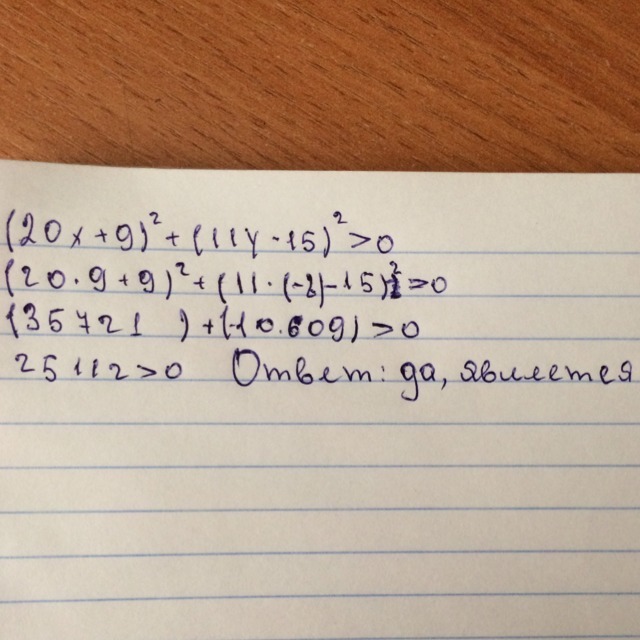 (20x+9)²+(11y-15)²>0
(20·9+9)²+(11·(-8)-15)²>0
(35721)+(-10.609)>0
25112>0 Ответ: да, является